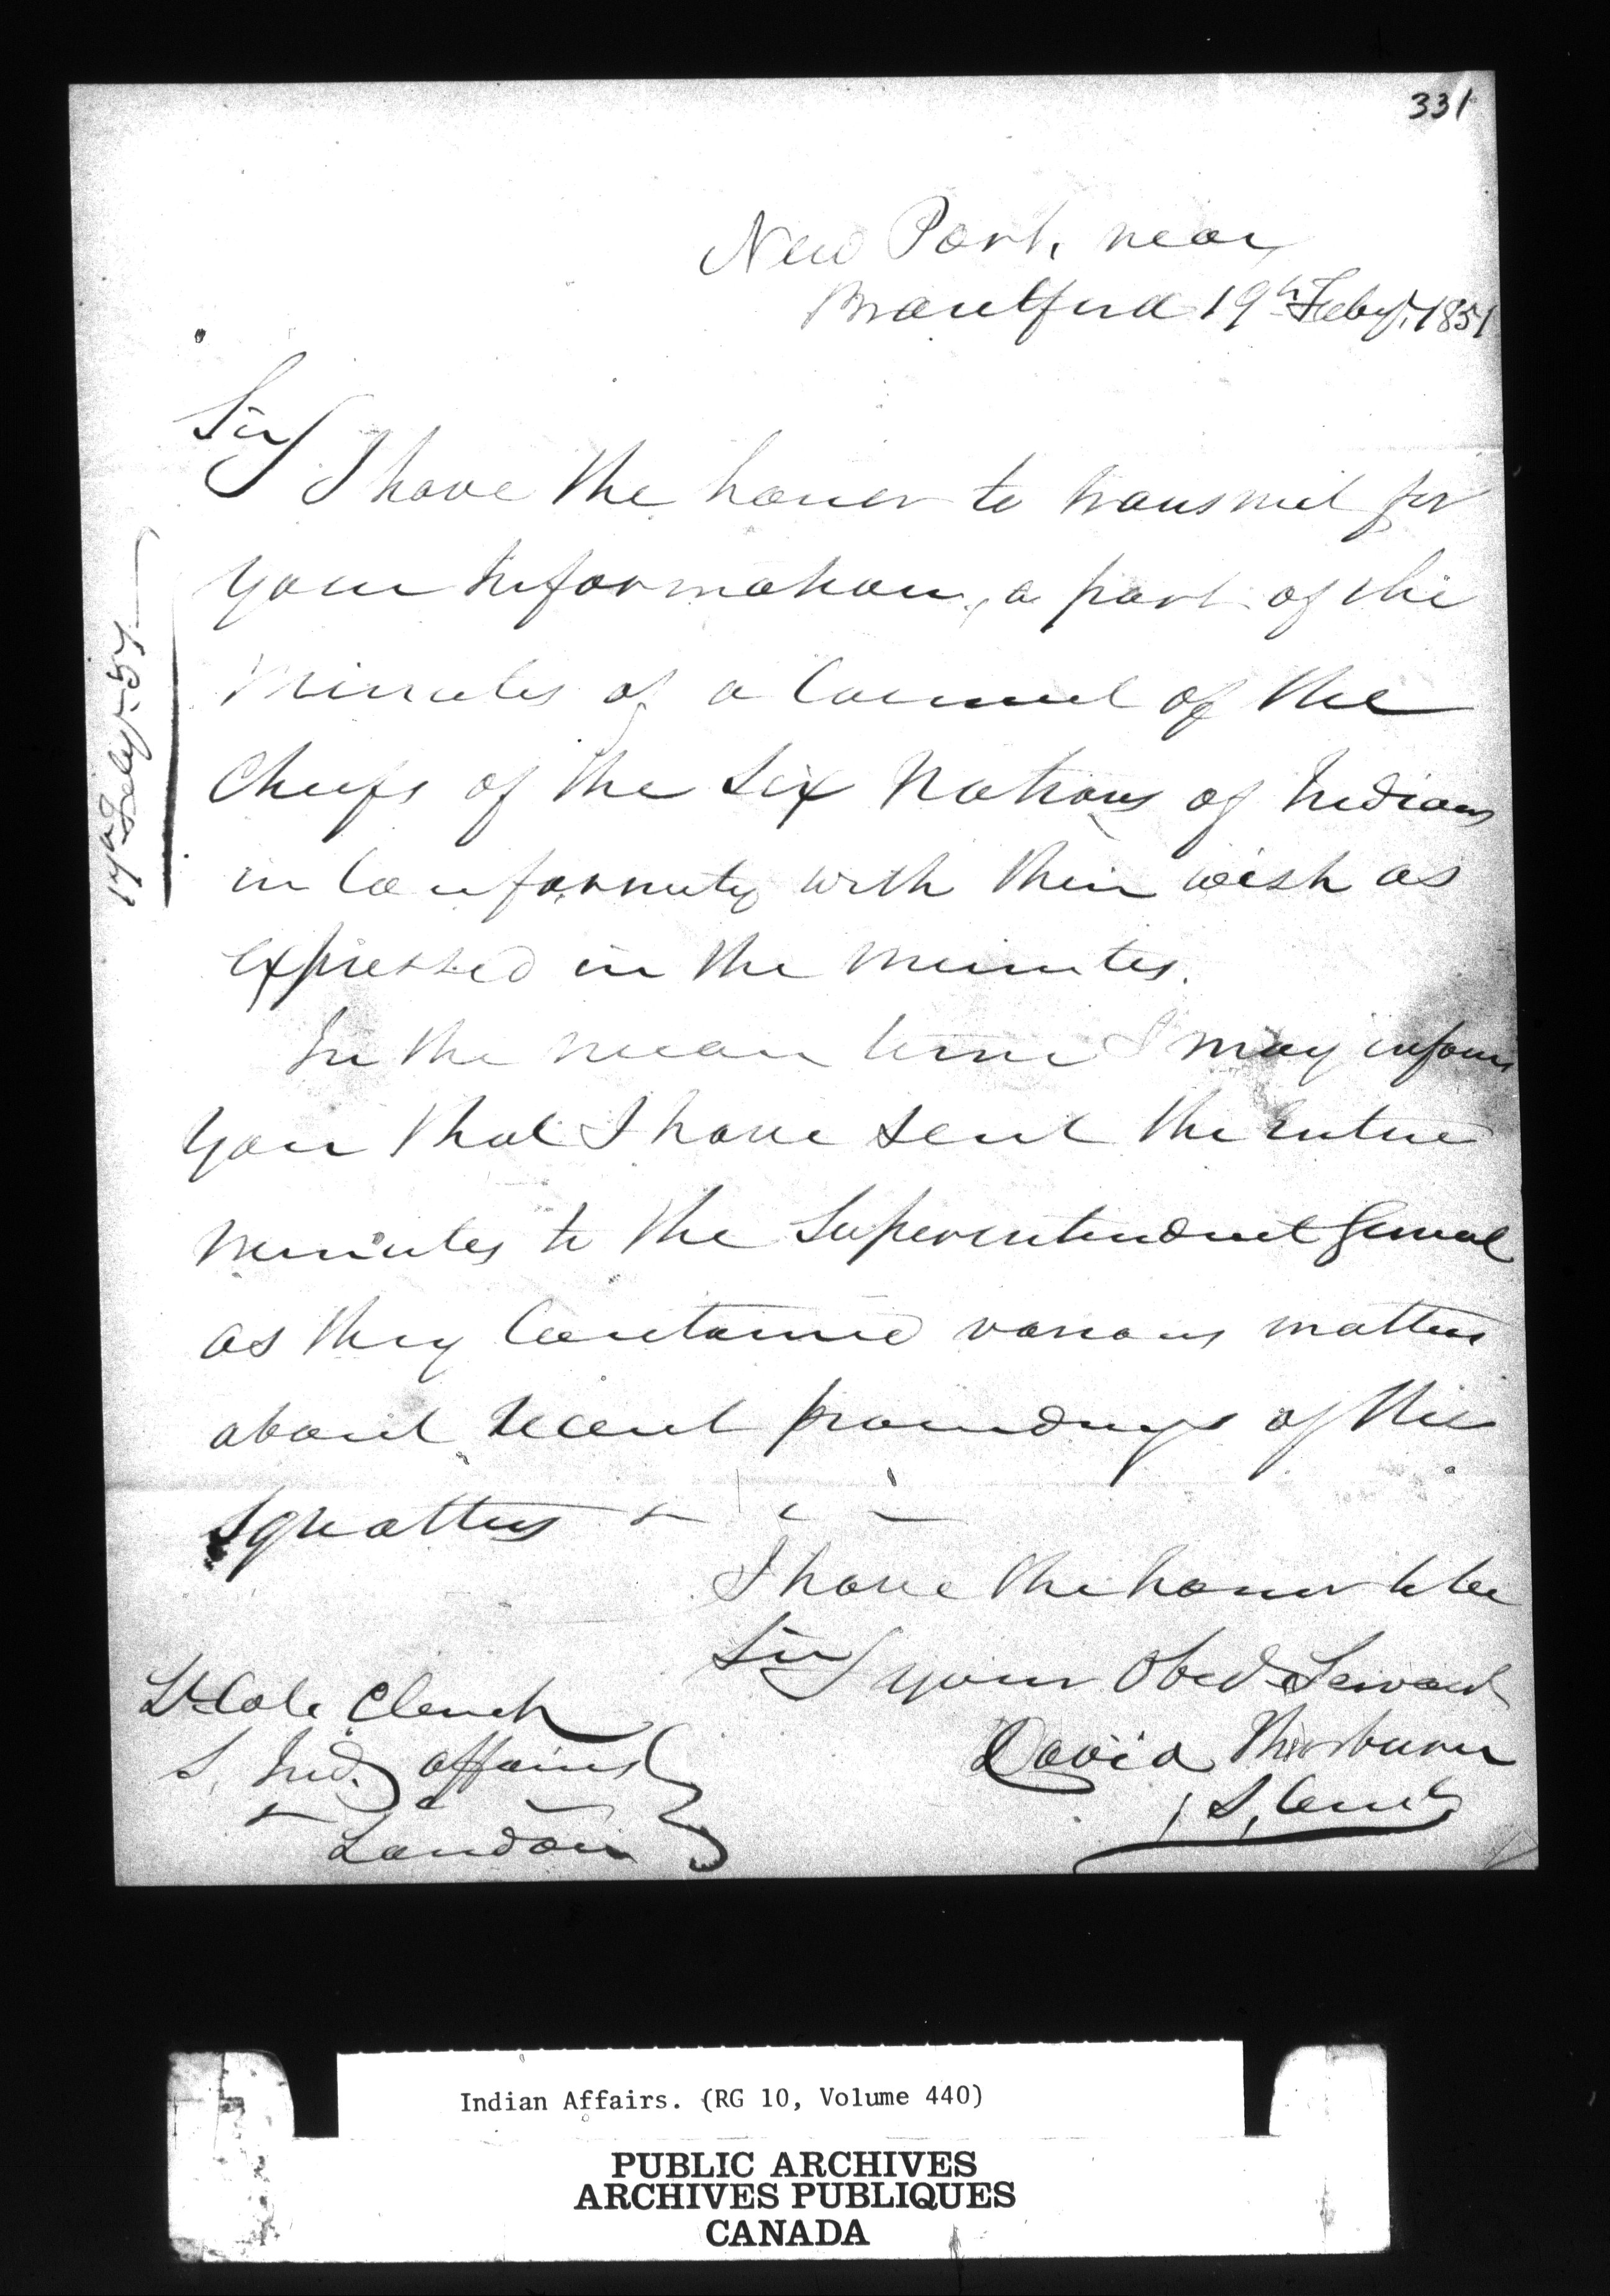 331
New Port, near
Brantford 19th Feby. 1851
Sir
I have the honor to transmit for
your Information, a part of the
Minutes of a Council of the
Cheifs of the Six Nations of Indians
in Conformity with their wish as
expressed in the minutes.
In the mean time I may inform
you that I have sent the Entire
minutes to the Superintendent General
as they Contained various matters
about recent proceedings of the
Squatters
I have the honor to be
Sir your Obed Servant
David Thorburn
Lt Col. Clench
S. Ind. affairs
London
17th Feby. 51
Indian Affairs. (RG 10, Volume 440)
PUBLIC ARCHIVES
ARCHIVES PUBLIQUES
CANADA